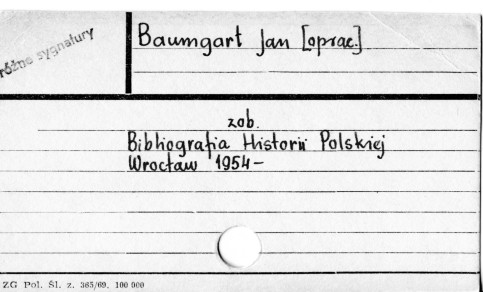 różne sygnatury
Baumgart Jan [oprac.]
zob.
Bibliografia Historii Polskiej
Wrocław 1954-
ZG Pol. Śl. z. 365/69. 100 000